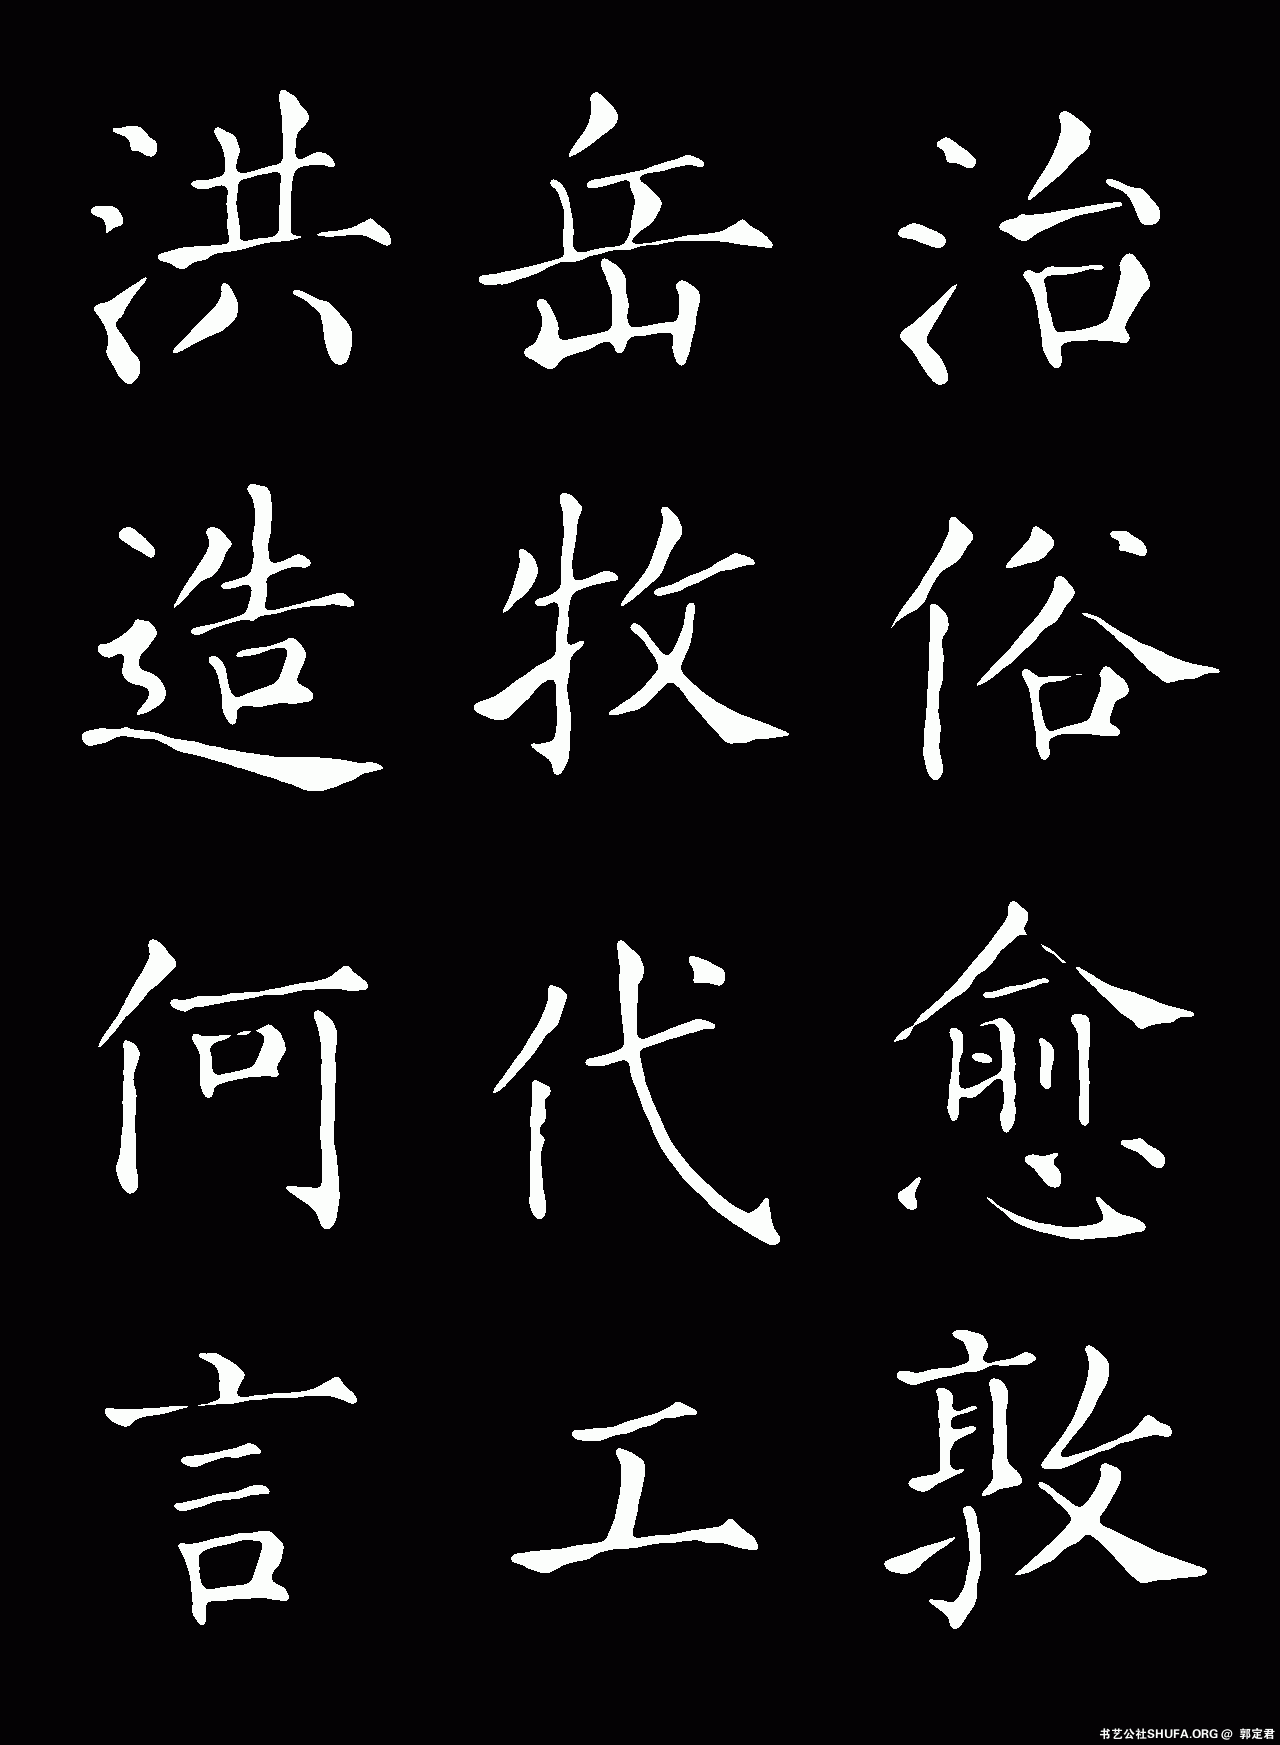 治俗愈敦
岳牧代工
洪造何言
书艺公社SHUFA.ORG @ 郭定君